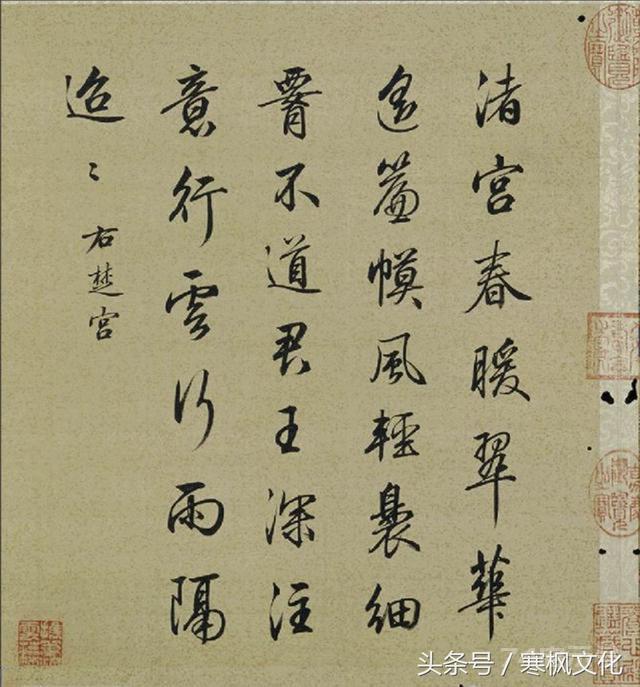 渚宮春暖翠華
遙簾幙風輕裊細
腰不道君王深注
意行雲行雨隔
迢〻
右楚宮
头条号 / 寒枫文化